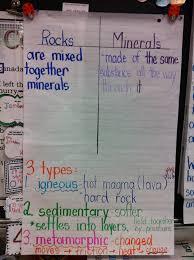 Rocks
are mixed
together
minerals
Minerals
-made of the same
substance all the way
through it
3 types:
1. igneous - hot magma (lava)
hard rock
2. sedimentary - softer
*settles into layers,
held together
by
3. metamorphic - changed
moves → friction → heat →